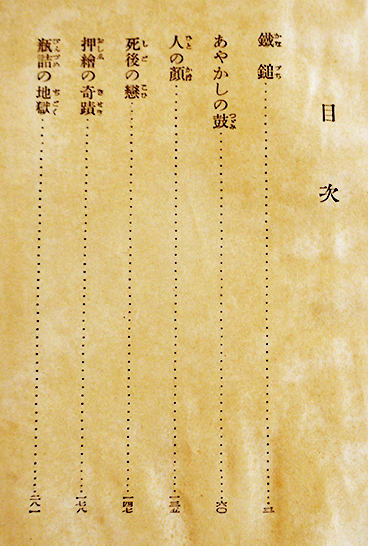 目次
鐵鎚……三
あやかしの鼓……六〇
人の顏……一三五
死後の戀……一四七
押繪の奇蹟……一七八
瓶詰の地獄……二八一